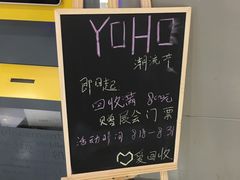 YOHO
潮流节
即日起
回收满 800元
免费展会门票
活动时间 8.18-8.31
爱回收